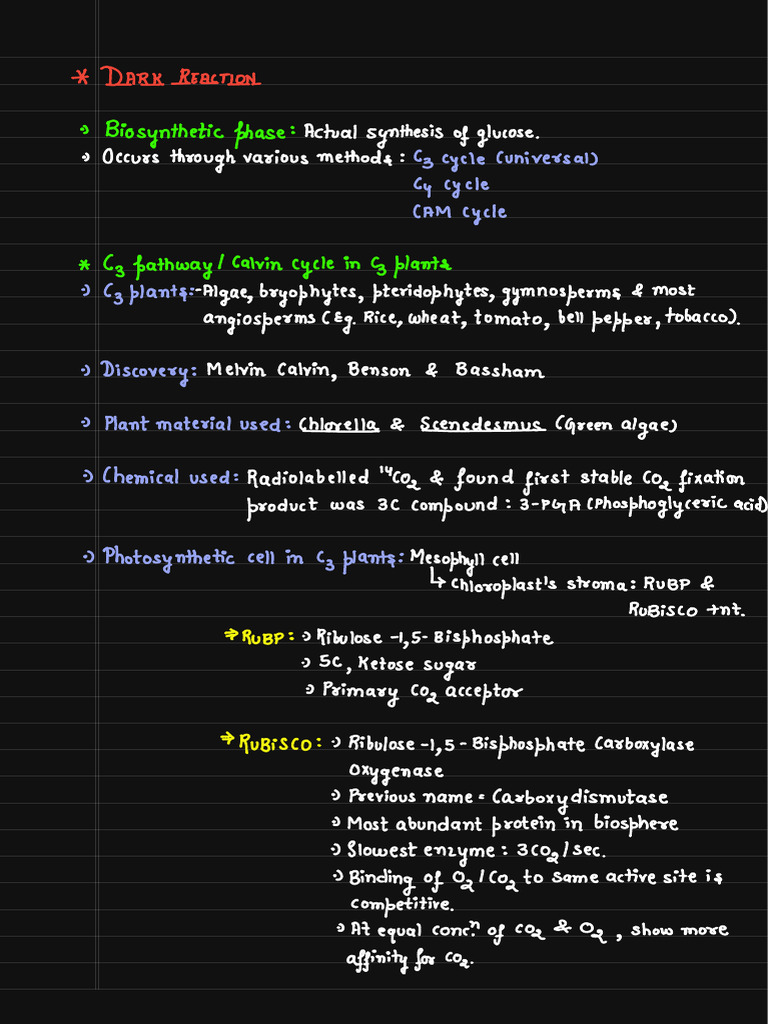 * DARK REACTION
Biosynthetic phase: Actual synthesis of glucose.
Occurs through various methods: C3 cycle (universal)
C4 cycle
CAM cycle
* C3 pathway / Calvin cycle in C3 plants
C3 plants:- Algae, bryophytes, pteridophytes, gymnosperms & most
angiosperms (Eg. Rice, wheat, tomato, bell pepper, tobacco).
Discovery: Melvin Calvin, Benson & Bassham
Plant material used: Chlorella & Scenedesmus (Green algae)
Chemical used: Radiolabelled ¹⁴CO₂ & found first stable CO₂ fixation
product was 3C compound: 3-PGA (Phosphoglyceric acid)
Photosynthetic cell in C3 plants: Mesophyll cell
↳ Chloroplast's stroma: RUBP &
RUBISCO +nt.
⇒ RUBP: Ribulose -1,5- Bisphosphate
5C, Ketose sugar
Primary CO₂ acceptor
⇒ RUBISCO: Ribulose -1,5 - Bisphosphate Carboxylase
Oxygenase
Previous name = Carboxydismutase
Most abundant protein in biosphere
Slowest enzyme: 3CO₂/sec.
Binding of O₂/CO₂ to same active site is
competitive.
At equal concⁿ. of CO₂ & O₂, show more
affinity for CO₂.